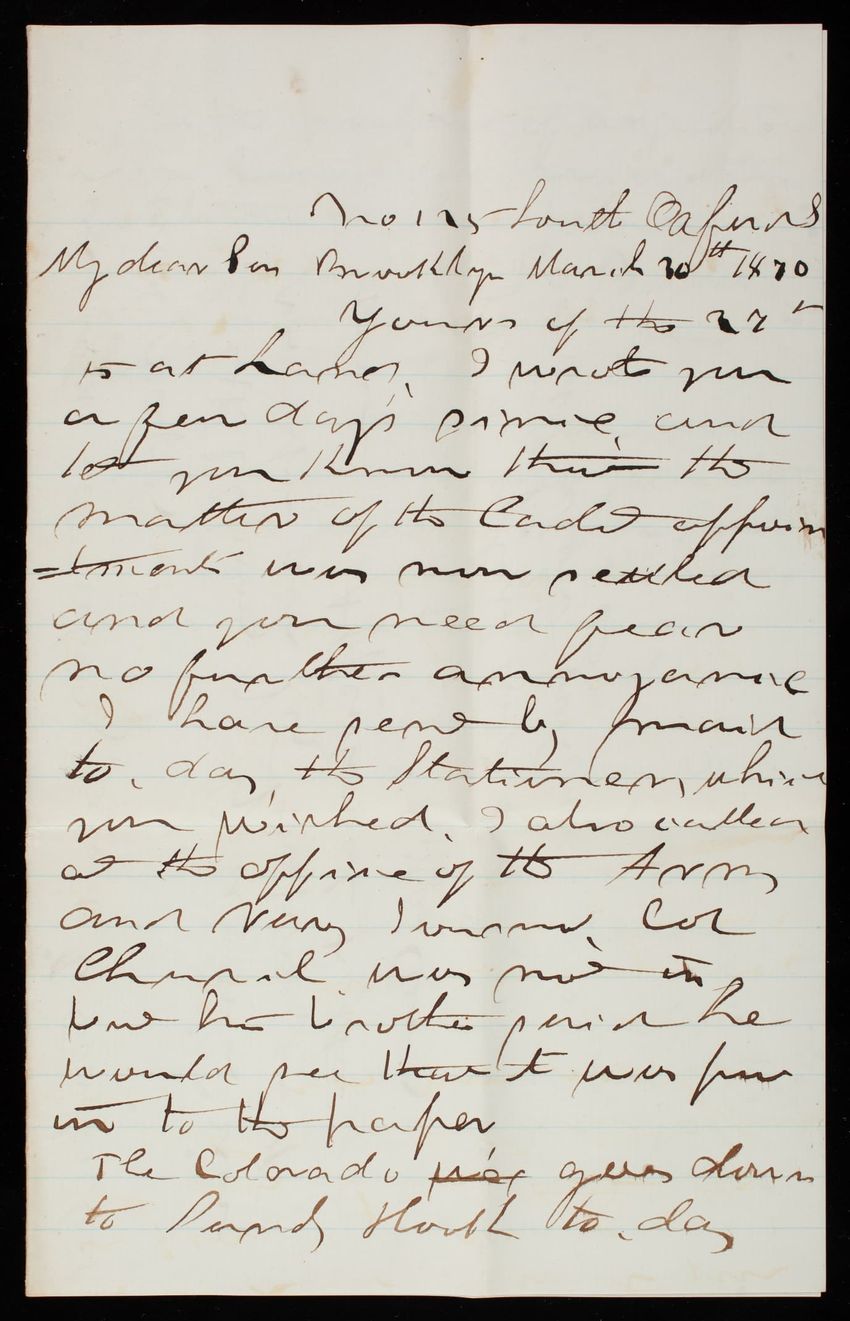 No 125 South Oxford S
My dear Son Brooklyn March 30th 1870
Yours of the 27th
is at hand, I wrote you
a few days since, and
let you know that the
matter of the Cadet appoin
=tment was now settled
and you need fear
no further annoyance
I have sent by mail
to-day the Stationery which
you wished. I also called
at the office of the Army
and Navy Journal, Col
Church was not in,
but his brother said he
would see that it was put
in to the paper
The Colorado goes down
to Sandy Hook to-day